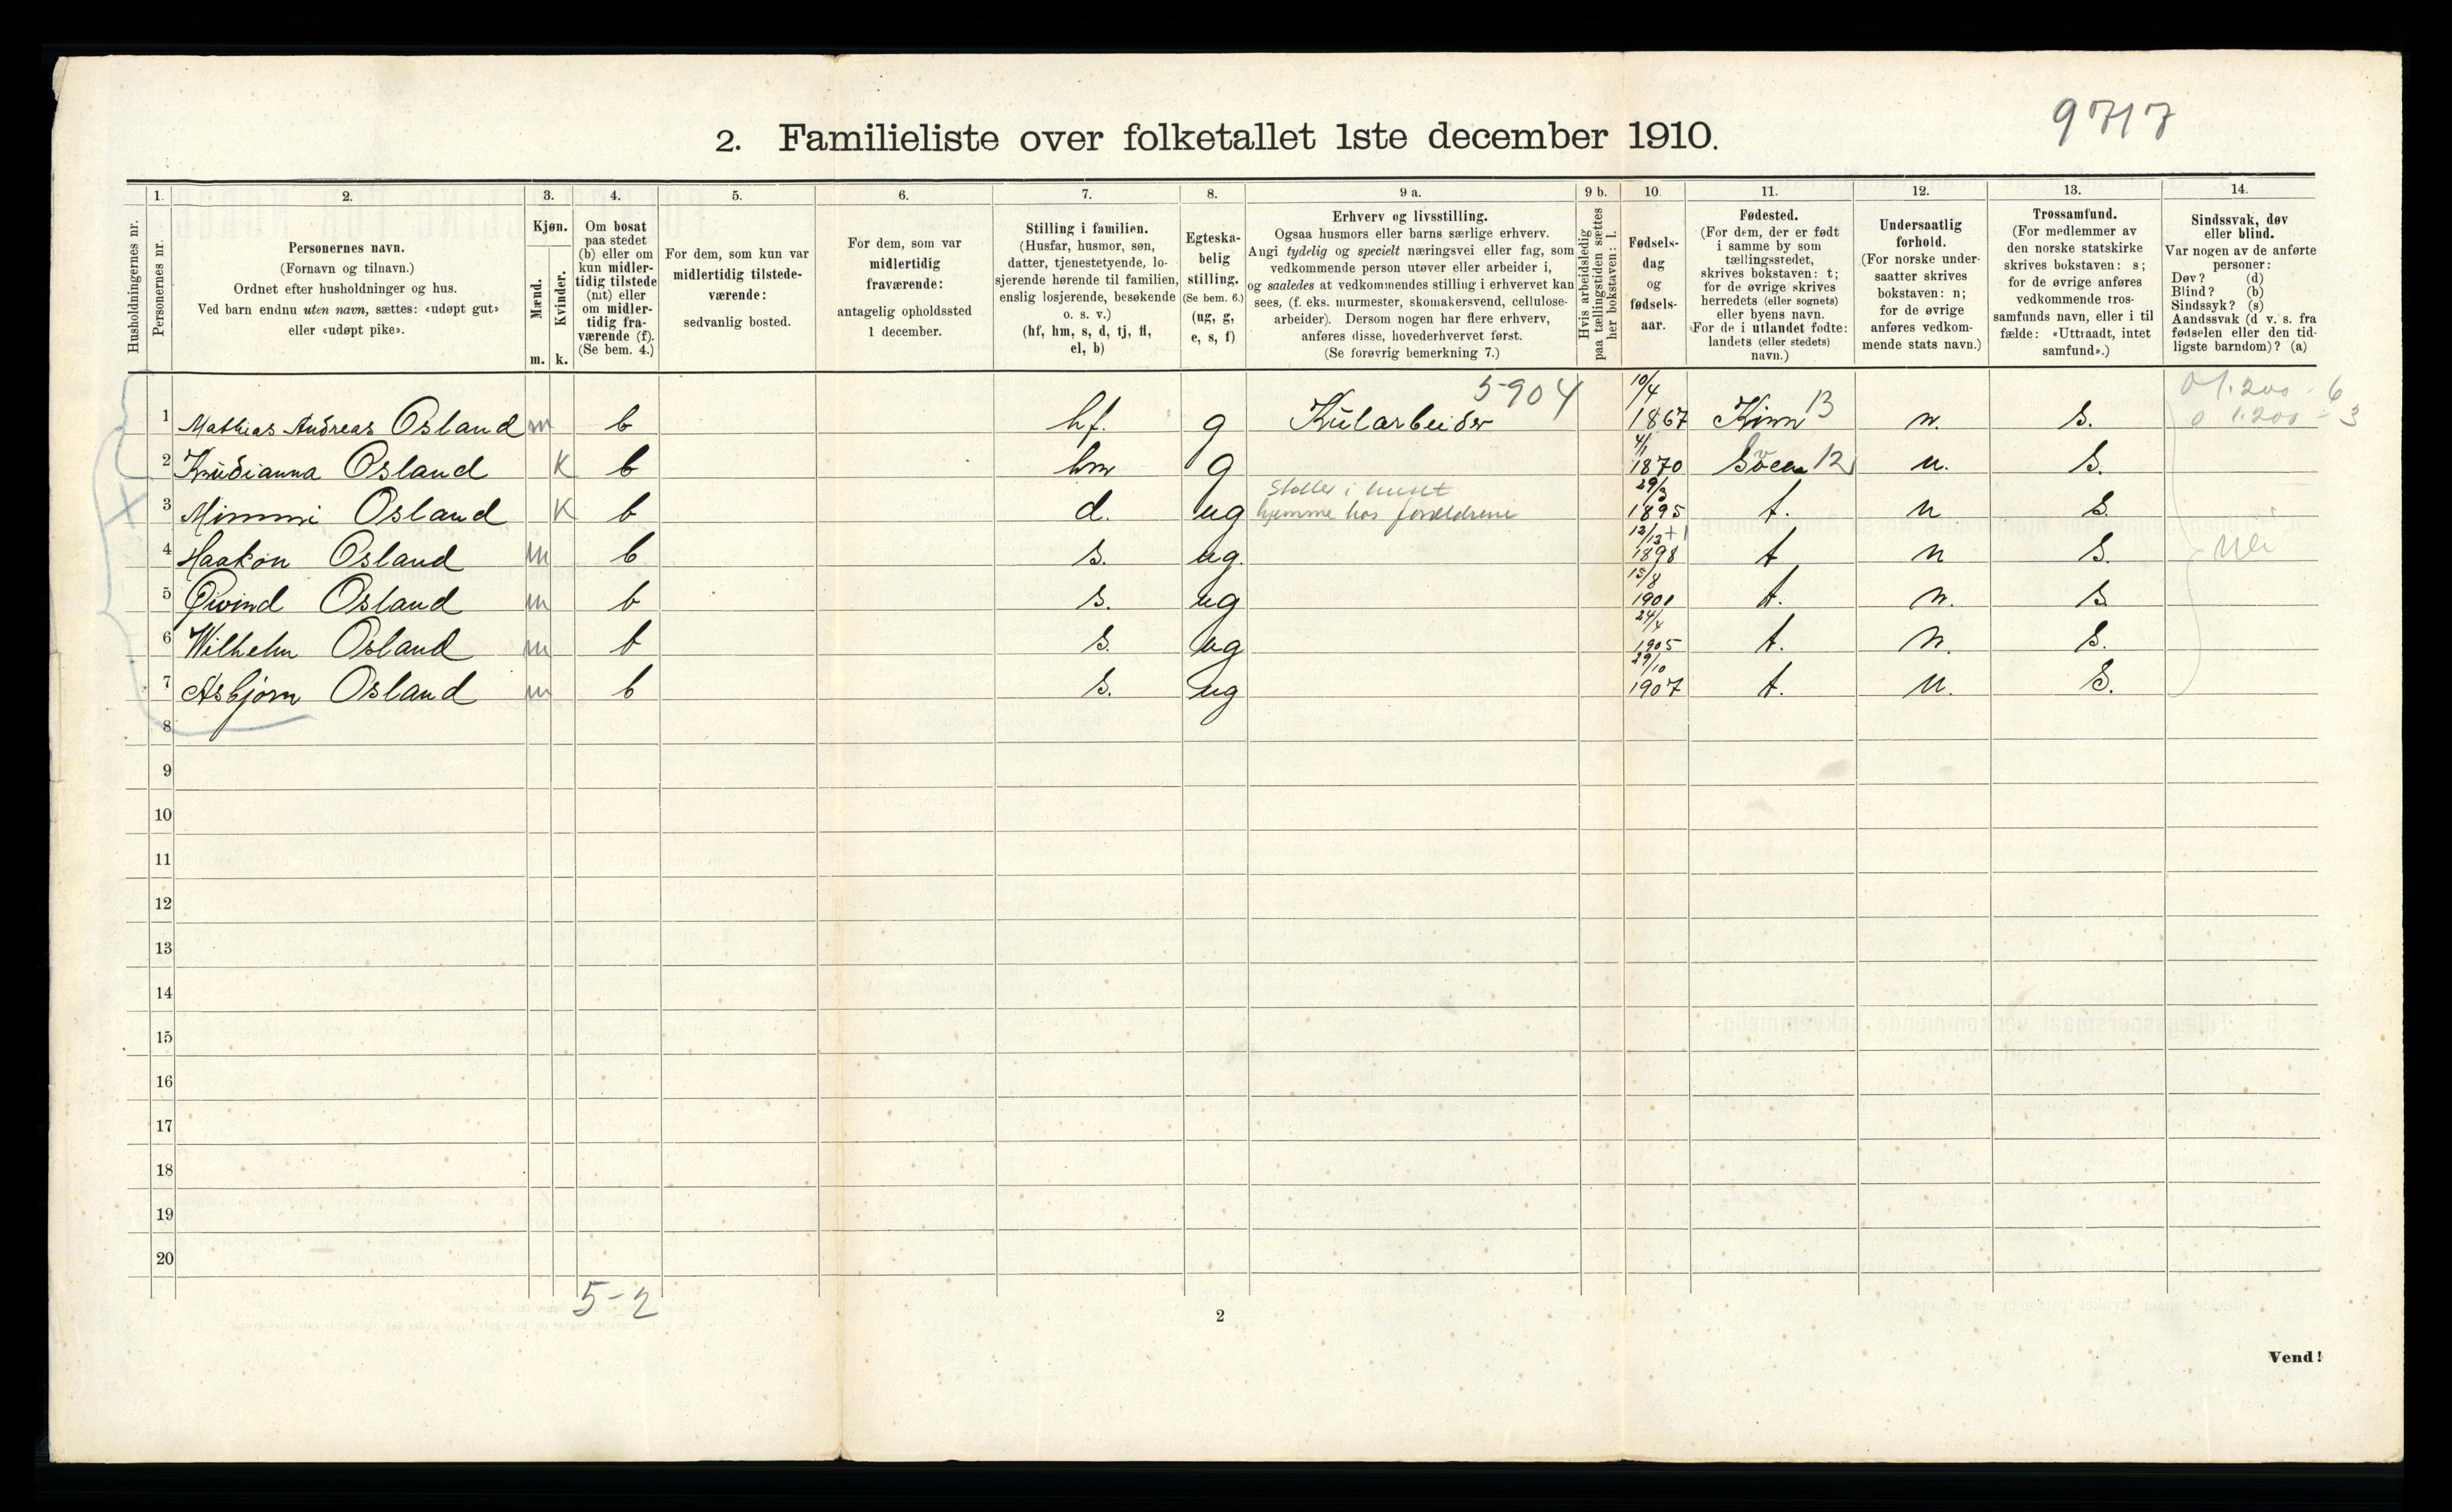 9717
2. Familieliste over folketallet 1ste december 1910.
Husholdningernes nr.
1.
Personernes nr.
2.
Personernes navn.
(Fornavn og tilnavn.)
Ordnet efter husholdninger og hus.
Ved barn endnu uten navn, sættes: «udøpt gut»
eller «udøpt pike».
3.
Kjøn.
Mænd.
Kvinder.
m. k.
4.
Om bosat
paa stedet
(b) eller om
kun midler-
tidig tilstede
(mt) eller
om midler-
tidig fra-
værende (f).
(Se bem. 4.)
5.
For dem, som kun var
midlertidig tilstede-
værende:
sedvanlig bosted.
6.
For dem, som var
midlertidig
fraværende:
antagelig opholdssted
1 december.
7.
Stilling i familien.
(Husfar, husmor, søn,
datter, tjenestetyende, lo-
sjerende hørende til familien,
enslig losjerende, besøkende
o. s. v.)
(hf, hm, s, d, tj, fl,
el, b)
8.
Egteska-
belig
stilling.
(Se bem. 6.)
(ug, g,
e, s, f)
9 a.
Erhverv og livsstilling.
Ogsaa husmors eller barns særlige erhverv.
Angi tydelig og specielt næringsvei eller fag, som
vedkommende person utøver eller arbeider i,
og saaledes at vedkommendes stilling i erhvervet kan
sees, (f. eks. murmester, skomakersvend, cellulose-
arbeider). Dersom nogen har flere erhverv,
anføres disse, hovederhvervet først.
(Se forøvrig bemerkning 7.)
9 b.
Hvis arbeidsledig
paa tællingstiden sættes
her bokstaven: l.
10.
Fødsels-
dag
og
fødsels-
aar.
11.
Fødested.
(For dem, der er født
i samme by som
tællingsstedet,
skrives bokstaven: t;
for de øvrige skrives
herredets (eller sognets)
eller byens navn.
For de i utlandet fødte:
landets (eller stedets)
navn.)
12.
Undersaatlig
forhold.
(For norske under-
saatter skrives
bokstaven: n;
for de øvrige
anføres vedkom-
mende stats navn.)
13.
Trossamfund.
(For medlemmer av
den norske statskirke
skrives bokstaven: s;
for de øvrige anføres
vedkommende tros-
samfunds navn, eller i til
fælde: «Uttraadt, intet
samfund».)
14.
Sindssvak, døv
eller blind.
Var nogen av de anførte
personer:
Døv? (d)
Blind? (b)
Sindssyk? (s)
Aandssvak (d v. s. fra
fødselen eller den tid-
ligste barndom)? (a)
5904 10/4
1 Mathias Andreas Osland m b hf. g Kularbeider 1867 Kinn 13 n. s.
4/1
2 Knudianna Osland K b hm g 1870 12 n. s.
29/3
3 Mimmi Osland K b d. ug hjemme hos forældrene 1895 t. n s.
12/12 +1
4 Haakon Osland m b s. ug. 1898 t n s. Nei
15/8
5 Øivind Osland m b s. ug 1901 t. n. s.
24/4
6 Wilhelm Osland m b s. ug 1905 t. n. s.
29/10
7 Asbjørn Osland m b s. ug 1907 t. n. s.
8
9
10
11
12
13
14
15
16
17
18
19
20
5-2
2
Vend!